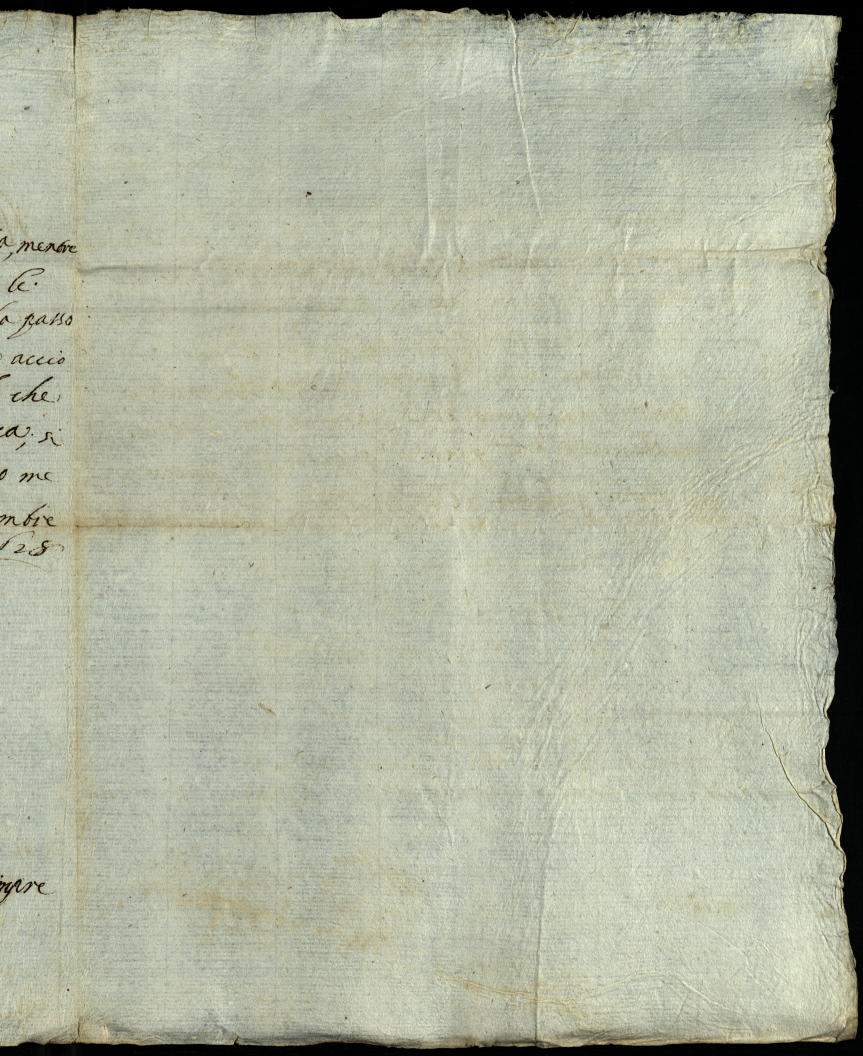 a, mentre
le.
la passo
accio
che
ca; si
o me
mbre
628
mpre